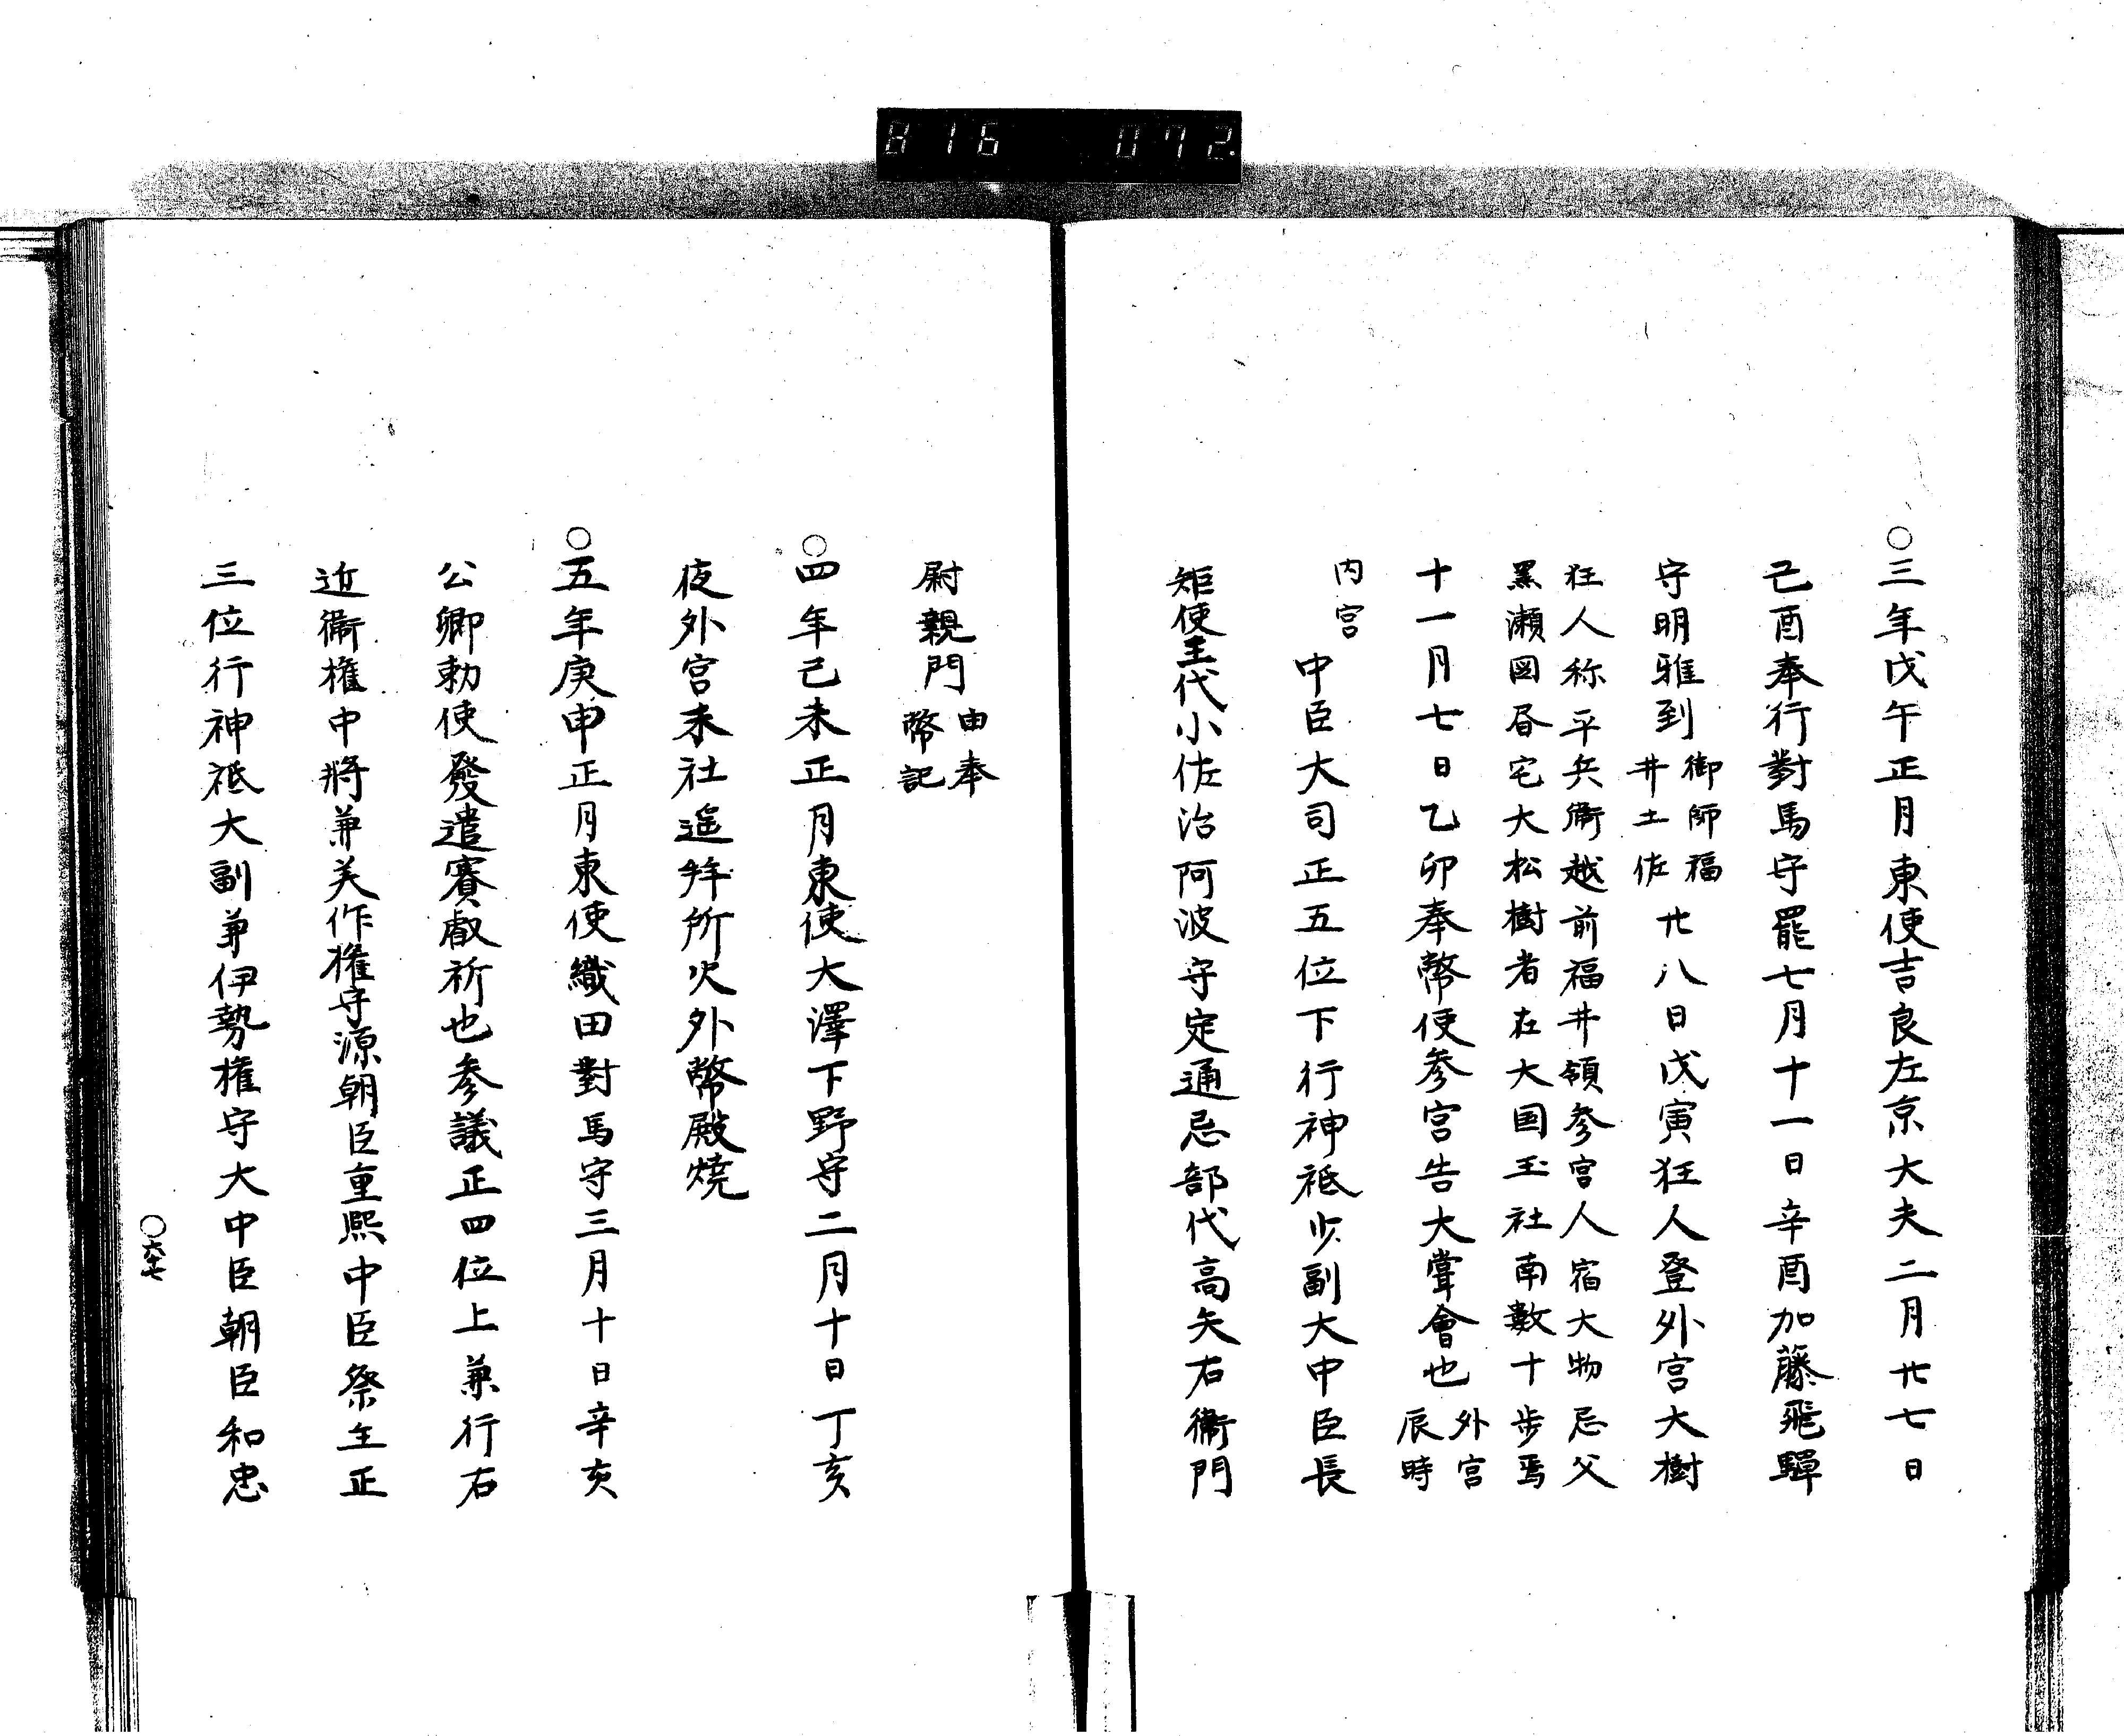 816 072
○三年戊午正月東使吉良左京大夫二月廿七日
己酉奉行對馬守罷七月十一日辛酉加藤飛驒
守明雅到御師福井土佐廿八日戊寅狂人登外宮大樹
狂人称平兵衞越前福井領参宮人宿大物忌父
黒瀬図昬宅大松樹者在大国玉社南數十歩焉
十一月七日乙卯奉幣使参宮告大甞會也外宮辰時
内宮
中臣大司正五位下行神祗少副大中臣長
矩使王代小佐治阿波守定通忌部代高矢右衞門
尉親門由奉幣記
○四年己未正月東使大澤下野守二月十日丁亥
夜外宮末社遥拜所火外幣殿焼
○五年庚申正月東使織田對馬守三月十日辛亥
公卿勅使發遣賽叡祈也参議正四位上兼行右
近衞権中將兼美作権守源朝臣重熙中臣祭主正
三位行神祗大副兼伊勢権守大中臣朝臣和忠
○六七